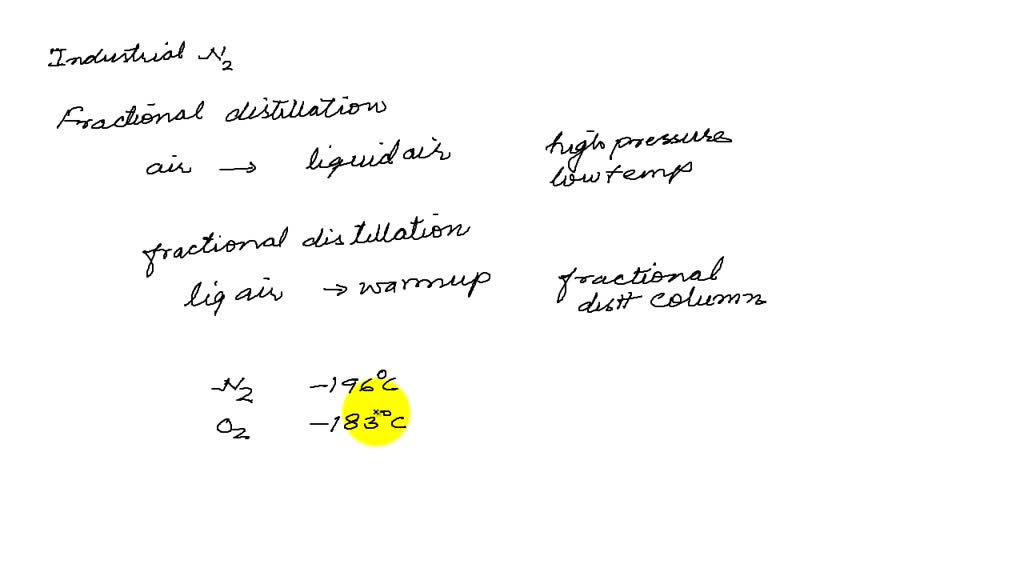 Industrial N2
Fractional distillation
air → liquid air
high pressures
low temp
fractional distillation
liq air → warmup
fractional
distt column
N2 -196°C
O2 -183°C